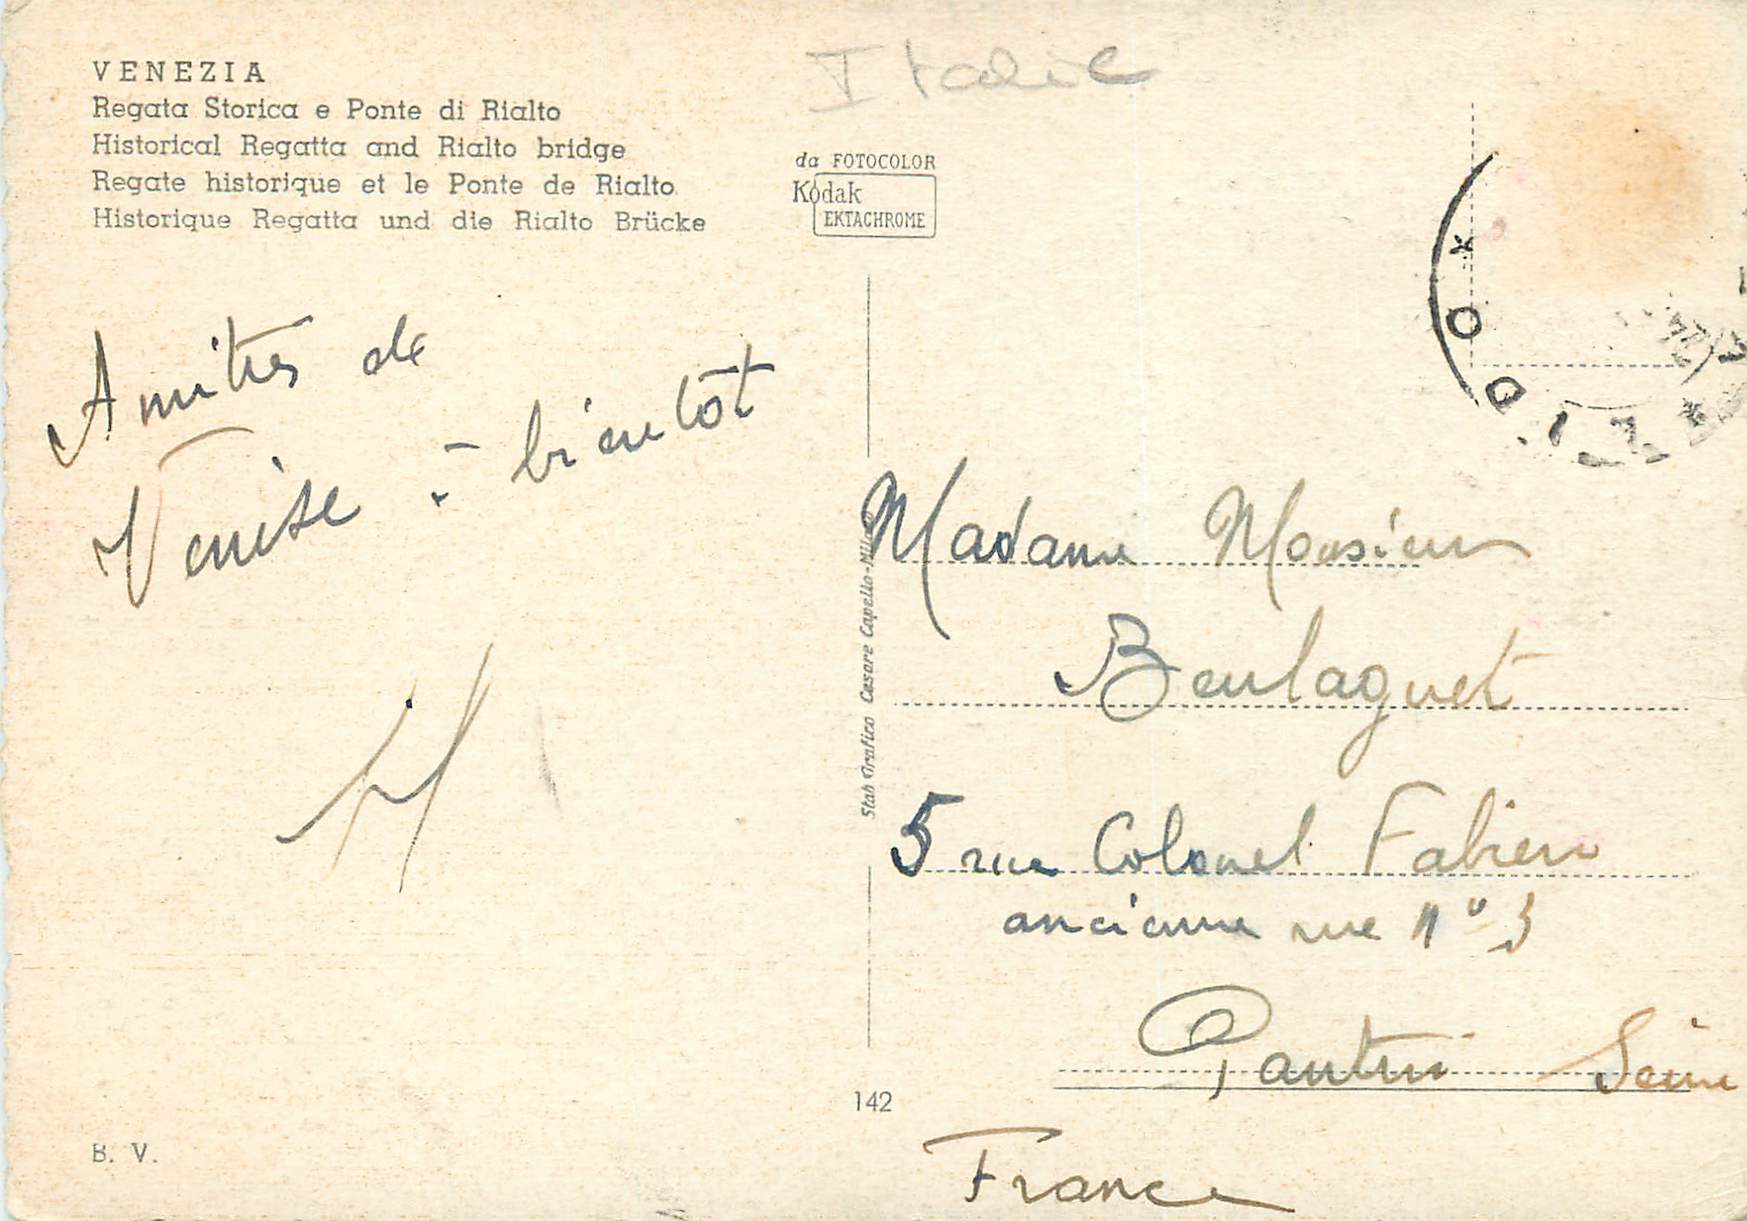 VENEZIA
Regata Storica e Ponte di Rialto
Historical Regatta and Rialto bridge
Regate historique et le Ponte de Rialto
Historique Regatta und die Rialto Brücke
Italie
da FOTOCOLOR
Kodak
EKTACHROME
Amitiés de
Venise à bientôt
Stab Grafico Cesare Capello-Milano
Madame Monsieur
Beulaguet
5 rue Colonel Fabien
ancienne rue n° 3
Pantin Seine
France
142
B. V.